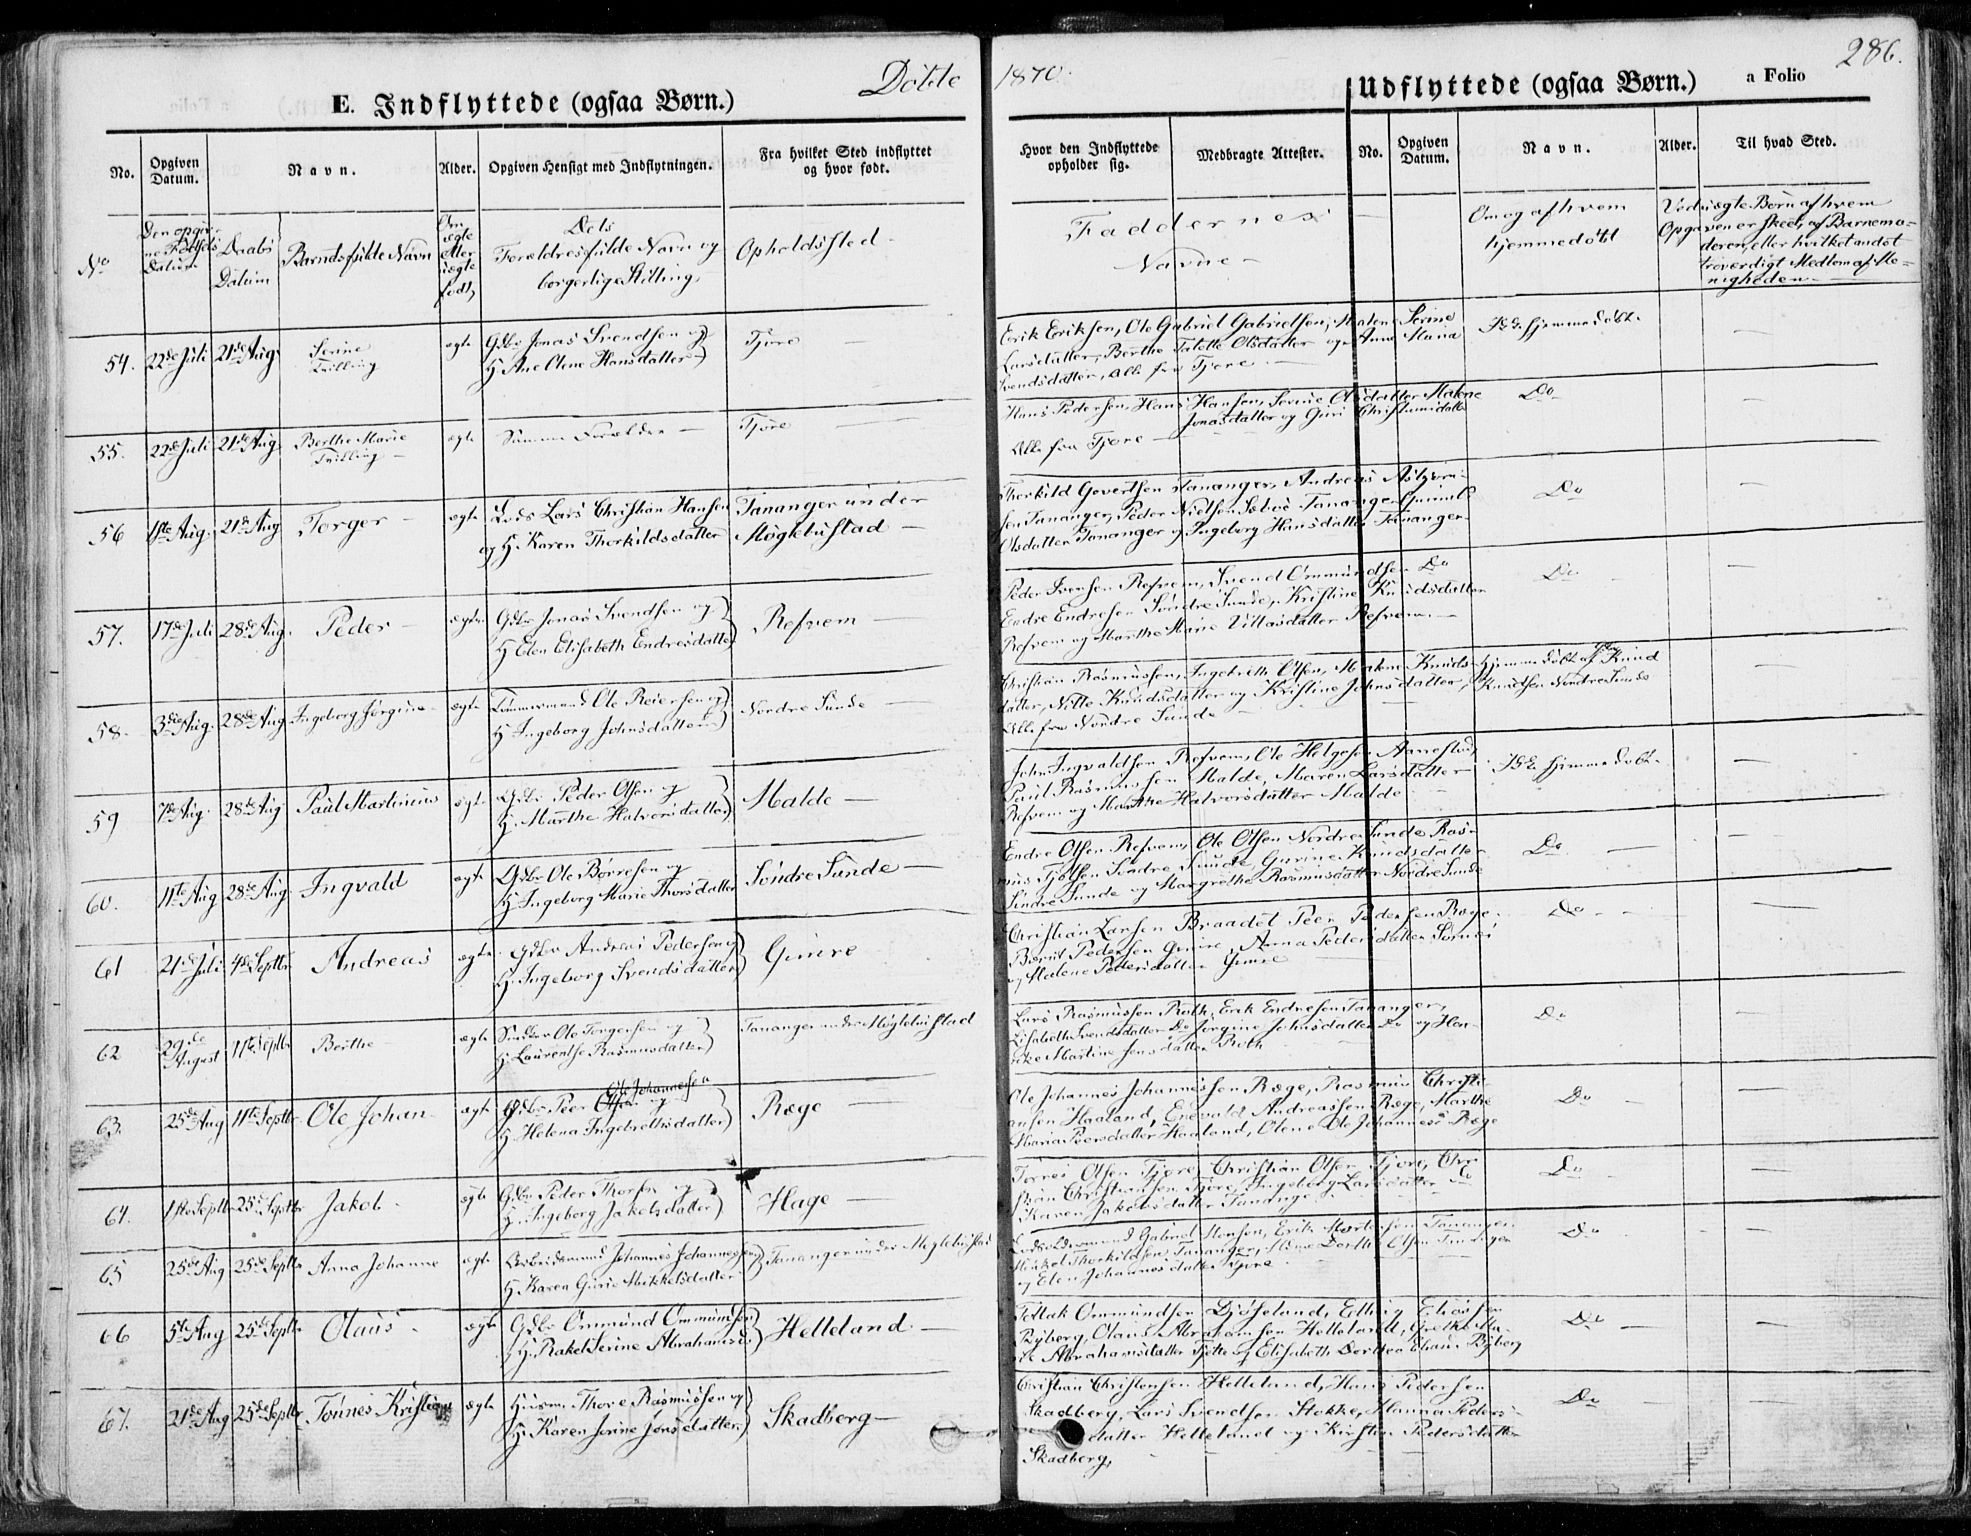 Döbte 1870.
286.
E. Indflyttede (ogsaa Børn.)
Udflyttede (ogsaa Børn.) a Folio
No. Opgiven Datum. Navn. Alder. Opgiven Hensigt med Indflytningen. Fra hvilket Sted indflyttet og hvor født.
Hvor den Indflyttede opholder sig. Medbragte Attester. No. Opgiven Datum. Navn. Alder. Til hvad Sted.
No Den opgivne Fødsels Datum Daabs Datum Barnets fulde Navn Om ægte eller uægte født, Dets Forældres fulde Navn og borgerlige Stilling, Opholdssted
Faddernes Navne
Om og af hvem hjemmedöbt
Ved uægte Børn af hvem Opgaven er skeet, af Barnemoderen, eller hvilket andet troværdigt Medlem af Menigheden
54. 22de Juli 21de Aug. Serine Tvilling ægte Gdbr Jonas Svendsen og H Ane Olene Hansdatter Tjore
Erik Eriksen, Ole Gabriel Gabrielsen, Malene Serine
Larsdatter, Berthe Olsdatter og Anne Maria
Svendsdatter, alle fra Tjore
Ikke hjemmedöbt
55. 22de Juli 21de Aug Berthe Marie Tvilling ægte Samme Forældre Tjore
Hans Pedersen, Hans Hansen, Serine Olsdatter Malene
Jonasdatter og Guri Christiansdatter
Alle fra Tjore
Do
56 1ste Aug. 21de Aug Torger ægte Lods Lars Christian Hansen og H. Karen Thorkildsdatter Tananger under Møglebustad
Thorkild Govertsen Tananger, Andreas
sen Tananger, Peder Nielsen Tananger
Olsdatter Tananger og Ingeborg Hansdatter Tananger
Do
57. 17de Juli 28de Aug. Peder ægte Gdbr Jonas Svendsen og H Elen Elisabeth Endresdatter Refvem
Peder Ivensen Refvem, Svend Ommundsen Do
Endre Endresen Söndre Sunde, Kristine Knudsdatter
Refvem og Marthe Marie Refvem
Do
58. 3die Aug. 28de Aug Ingeborg Jørgine ægte Tømmermand Ole Reiersen og H Ingeborg Johnsdatter Nordre Sunde
Christian Rasmussen, Ingebrith Olsen, Malene Knuds-
datter, Nille Knudsdatter og Kristine Johnsdatter,
Alle fra Nordre Sunde
Hjemmedöbt af Knud
Knudsen Nordre Sunde
59 7de Aug. 28de Aug Paul Martinius ægte Gdbr Peder Olsen og H. Marthe Halvorsdatter Malde
John Ingvaldsen Refvem, Ole Helgesen
Paul Rasmussen Malde, Maren Larsdatter
Refvem og Marthe Halvorsdatter Malde
Ikke hjemmedöbt
60. 11te Aug 28de Aug. Ingvald ægte Gdbr Ole Børresen og H Ingeborg Marie Thorsdatter Söndre Sunde
Endre Olsen Refvem, Ole Olsen Nordre Sunde Ras-
mus Söndre Sunde, Gurine Knudsdatter
Söndre Sunde og Margrethe Rasmusdatter Nordre Sunde
Do
61 21de Juli 4de Septbr. Andreas ægte Gdbr Andreas Pedersen og H. Ingeborg Svendsdatter Gimre
Christian Larsen Braadet Peer Pedersen Ræge
Berent Pedersen Gimre, Anna Pedersdatter
og Malene Pedersdatter Gimre
Do
62 29de August 11te Septbr Berthe ægte Ole Torgersen og H. Laurentse Rasmusdatter Tananger under Møglebustad
Lars Rasmussen Roth, Erik Endresen Tananger,
Elisabeth Svendsdatter Do Jorgine Johnsdatter Do og Hen-
rike Martine Jensdatter Roth
Do
63. 25de Aug 11te Septbr Ole Johan ægte Gdbr Peer Ole Johannesen og H. Helena Ingebretsdatter Ræge
Ole Johannes Johannessen Ræge, Rasmus Christi-
ansen Haaland, Enevald Andreassen Ræge, Marthe
Maria Peersdatter Haaland, Olene Ole Johanneses Ræge
Do
64. 1ste Septbr 25de Septbr Jakob ægte Gdbr Peder Thorsen og H. Ingeborg Jakobsdatter Hage
Torres Olsen Tjore, Christian Olsen Tjore, Chri-
stian Christiansen Tjore, Ingeborg Larsdatter Do
Karen Jakobsdatter Tananger
Do
65 25de Aug 25de Septbr Anna Johanne ægte Arbeidsmand Johannes Johannesen og H Karen Gurie Mikkelsdatter Tananger under Møglebustad
Gabriel Monsen, Erik Mortensen Tananger
Thorkildsen Tananger, Olsen Tananger
og Elen Johannesdatter Tjore
Do
66 5te Aug 25de Septbr Olaus ægte Gdbr Ommund Ommundsen H. Rakel Serine Abrahamsd. Helleland
Tollak Ommundsen Eliassen
Byberg, Olaus Abrahamsen Helleland, Grethe Ma-
rie Abrahamsdatter og Elisabeth Dorthea Byberg
Do
67. 21de Aug 25de Septbr Tønnes Kristian ægte Husm. Thore Rasmussen og H. Karen Serine Jonsdatter Skadberg
Christian Christensen Helleland, Hans Pedersen
Skadberg, Lars Svendsen Stokke, Hanna Peders-
datter Helleland og Kirsten Pedersdatter
Skadberg,
Do